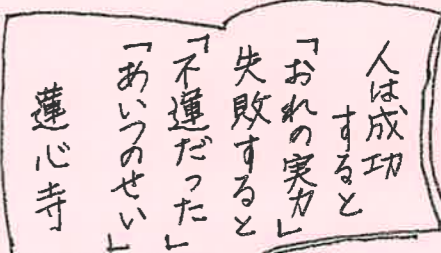 人は成功
すると
「おれの実力」
失敗すると
「不運だった」
「あいつのせい」
蓮心寺